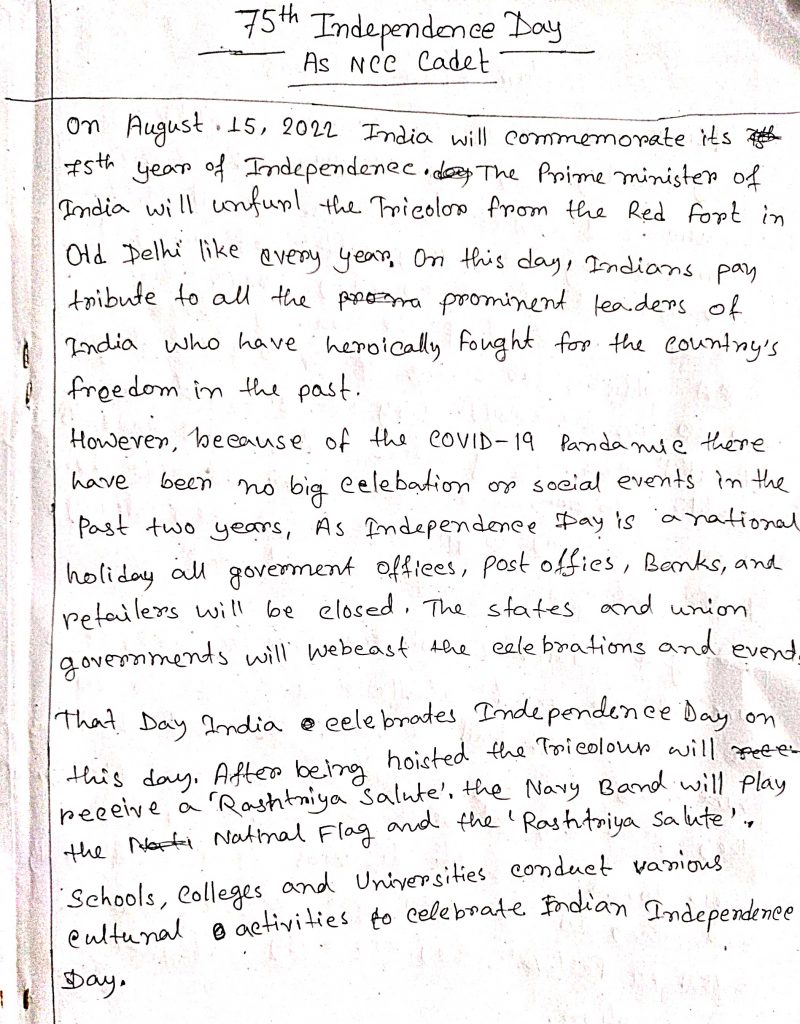 75th Independence Day
As NCC Cadet
On August. 15, 2022 India will commemorate its
75th year of Independence. The Prime minister of
India will unfurl the Tricolor from the Red Fort in
Old Delhi like every year. On this day, Indians pay
tribute to all the prominent leaders of
India who have heroically fought for the country's
freedom in the past.
However, because of the COVID-19 Pandamic there
have been no big celebation or social events in the
Past two years, As Independence Day is a national
holiday all goverment offices, post offies, Banks, and
retailers will be closed. The states and union
governments will webcast the celebrations and events
That Day India celebrates Independence Day on
this day. After being hoisted the Tricolour will
receive a 'Rashtriya Salute'. the Navy Band will Play
the Natinal Flag and the 'Rashtriya Salute'.
Schools, Colleges and Universities conduct various
cultural activities to celebrate Indian Independence
Day.